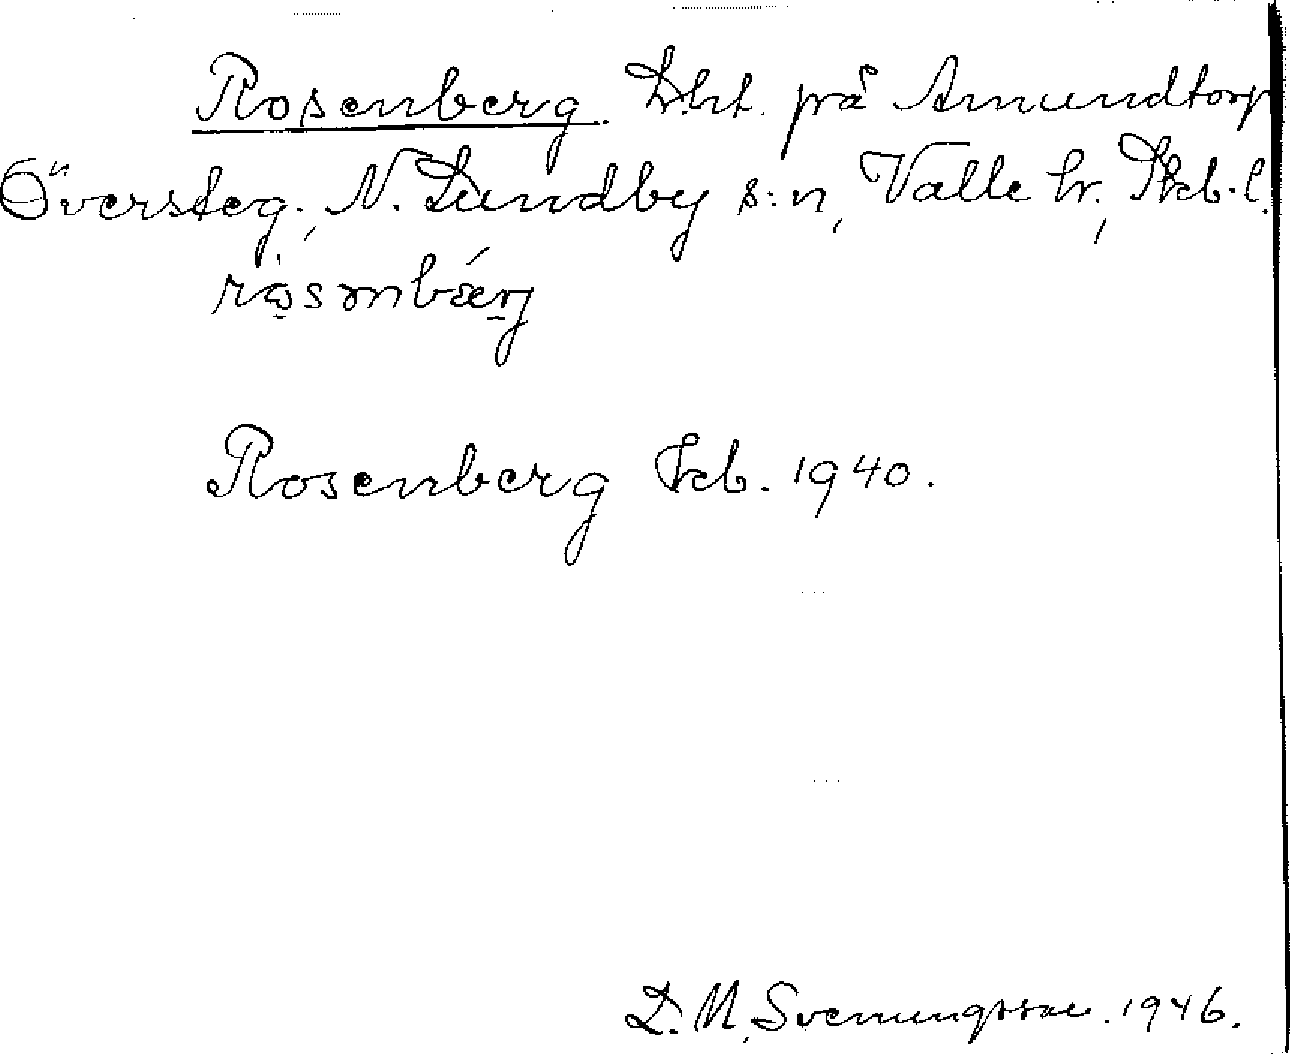 Rosenberg. Lht. på Amundtorp
Översteg., N. Lundby s:n, Valle hr, Skb. l.
Rosenberg Fkb. 1940.
D. M. Svenungsson. 1946.